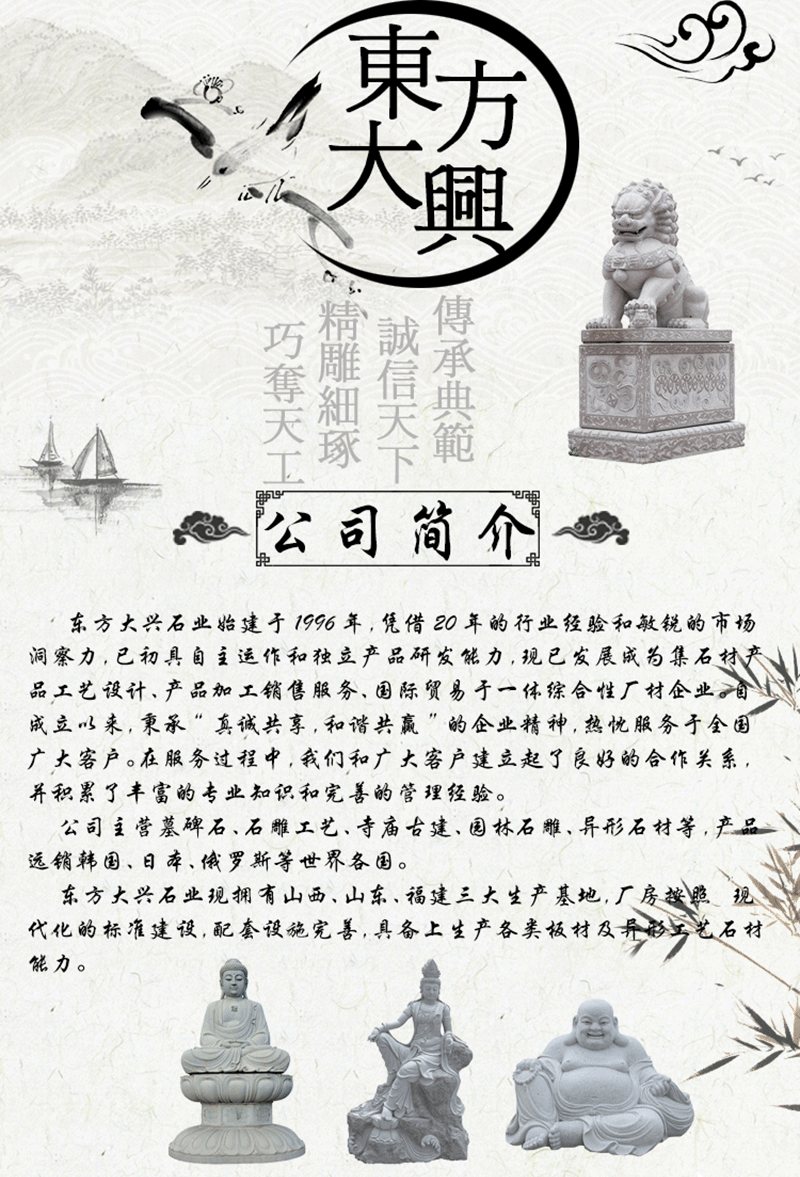 東方
大興
傳承典範
誠信天下
精雕細琢
巧奪天工
公司简介
东方大兴石业始建于1996年,凭借20年的行业经验和敏锐的市场
洞察力,已初具自主运作和独立产品研发能力,现已发展成为集石材产
品工艺设计、产品加工销售服务、国际贸易于一体综合性厂材企业。自
成立以来,秉承“真诚共享,和谐共赢”的企业精神,热忱服务于全国
广大客户。在服务过程中,我们和广大客户建立起了良好的合作关系,
并积累了丰富的专业知识和完善的管理经验。
公司主营墓碑石、石雕工艺、寺庙古建、园林石雕、异形石材等,产品
远销韩国、日本、俄罗斯等世界各国。
东方大兴石业现拥有山西、山东、福建三大生产基地,厂房按照 现
代化的标准建设,配套设施完善,具备上生产各类板材及异形工艺石材
能力。